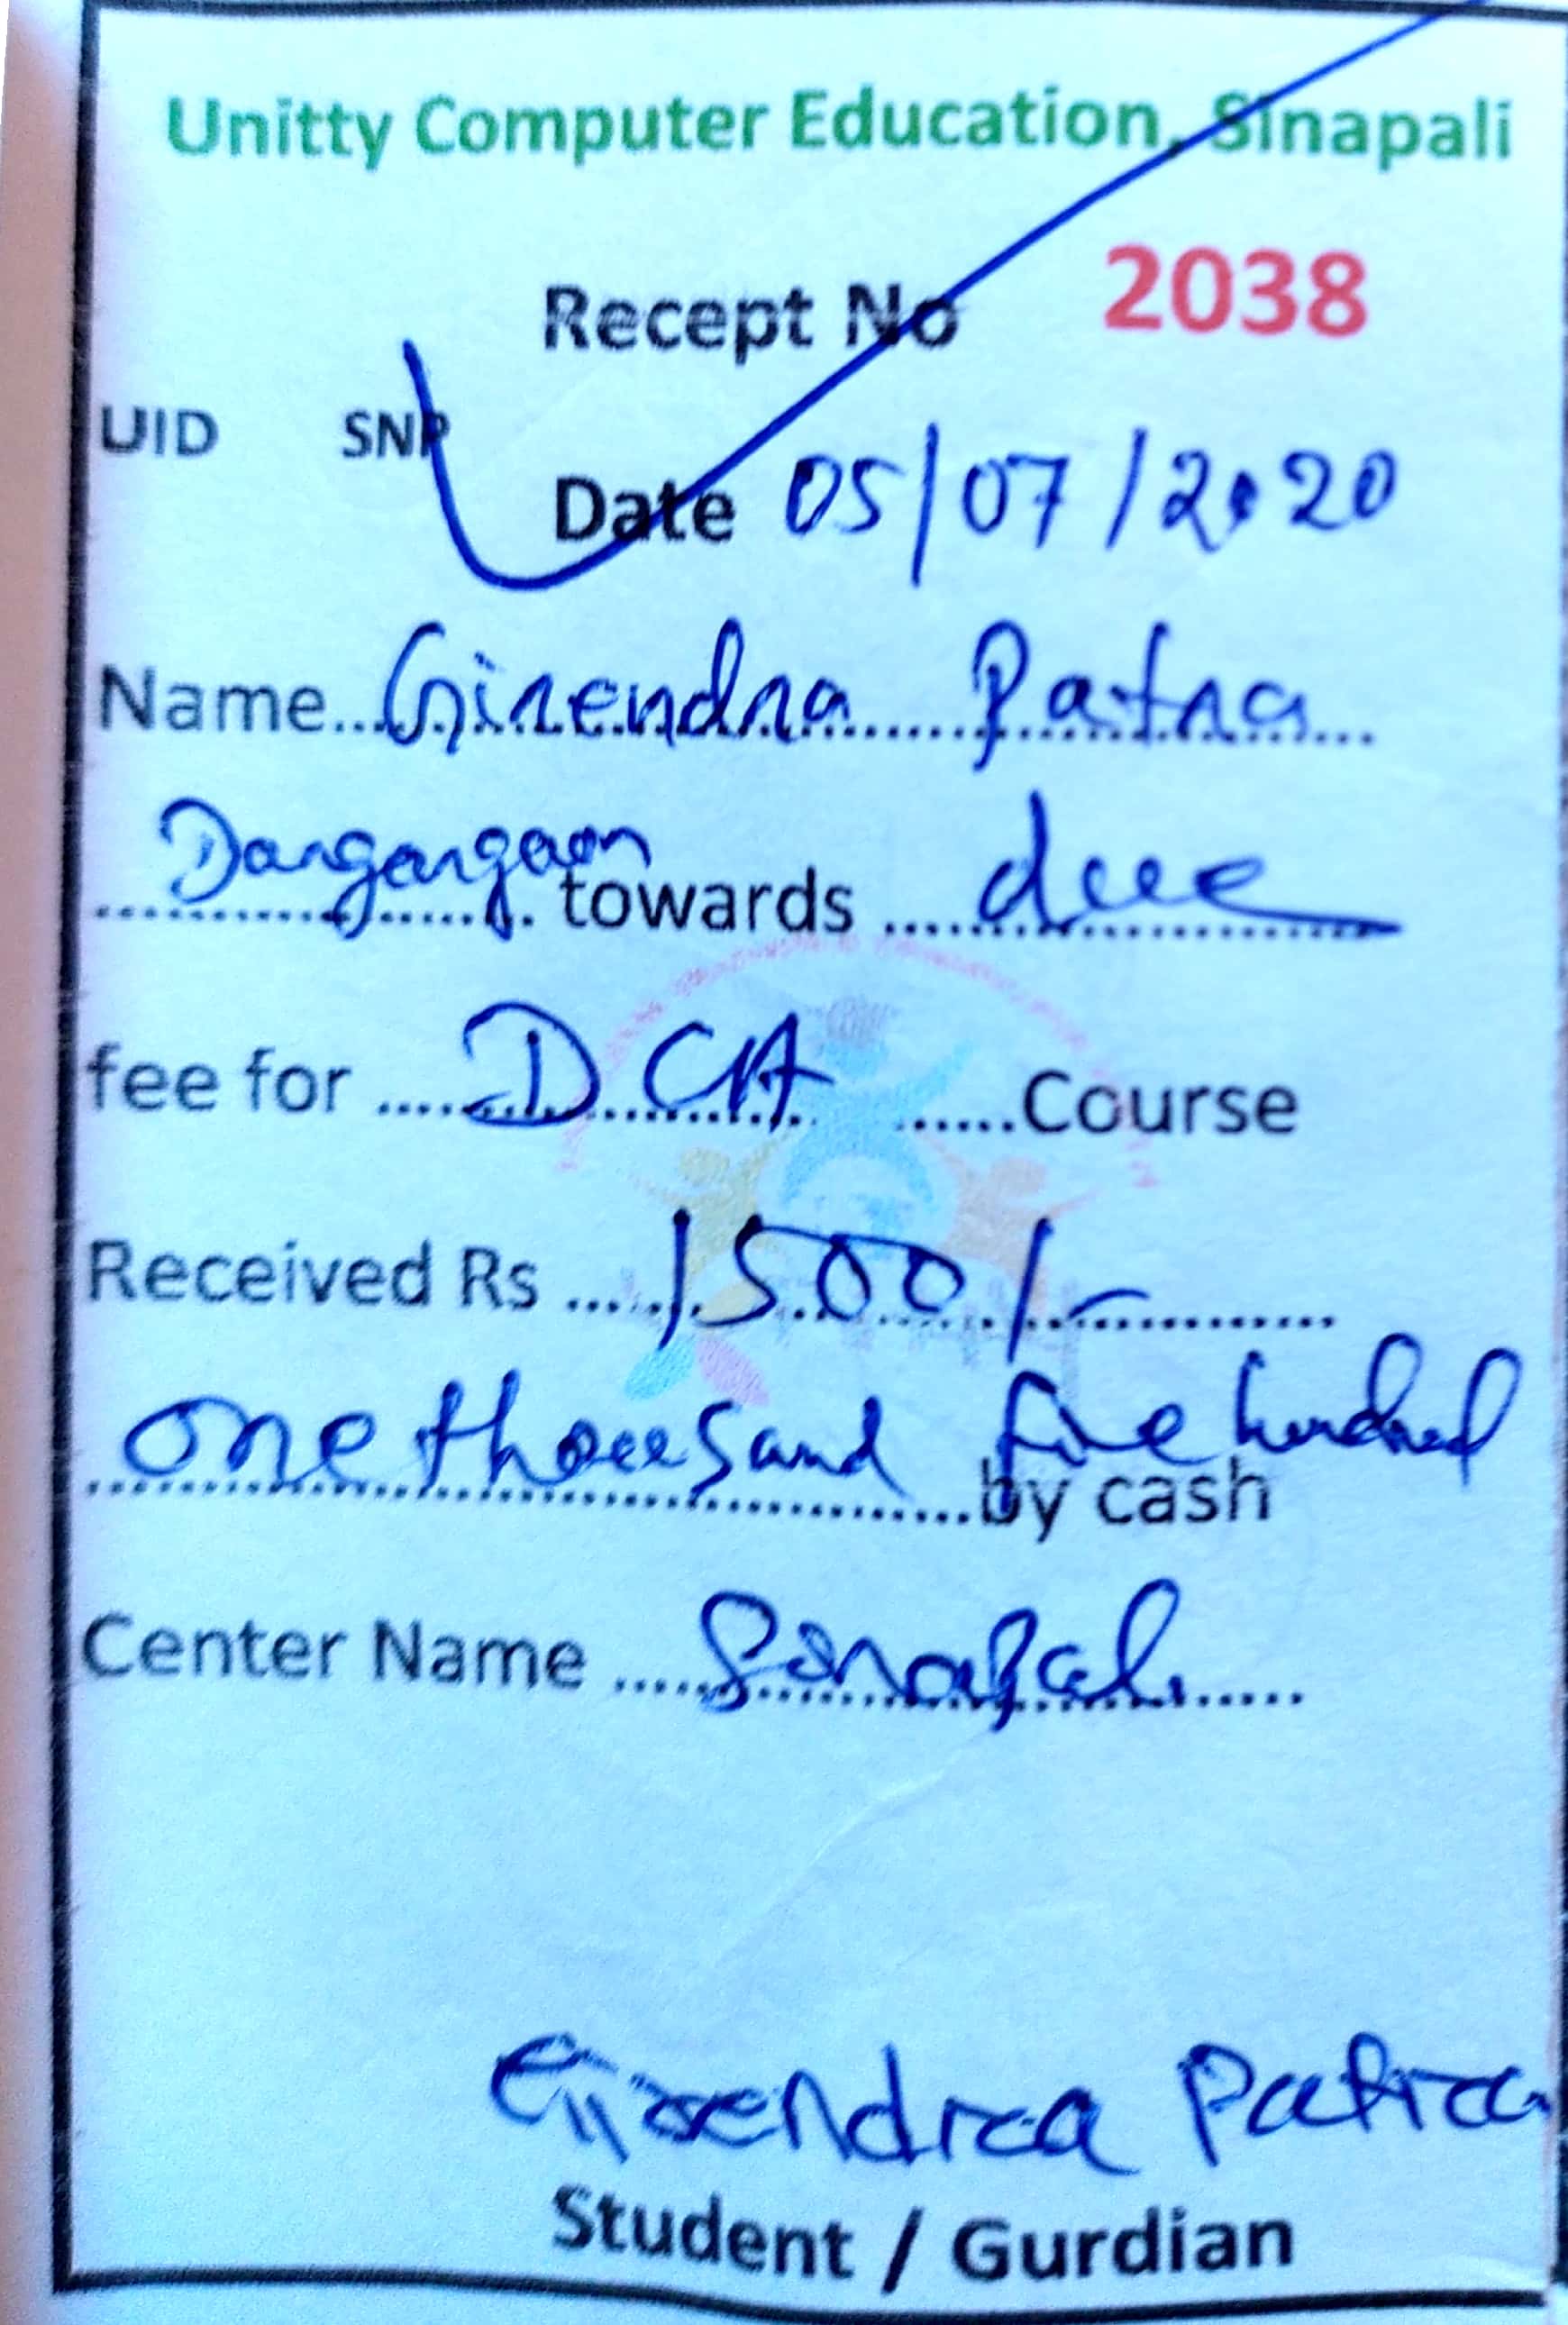 Unitty Computer Education, Sinapali
Recept No 2038
UID SNP
Date 05/07/2020
Name Girendra Patra
Dangargaon towards due
fee for DCA Course
Received Rs 1500/-
one thousand five hundred
by cash
Center Name Sinapali
Girendra Patra
Student / Gurdian